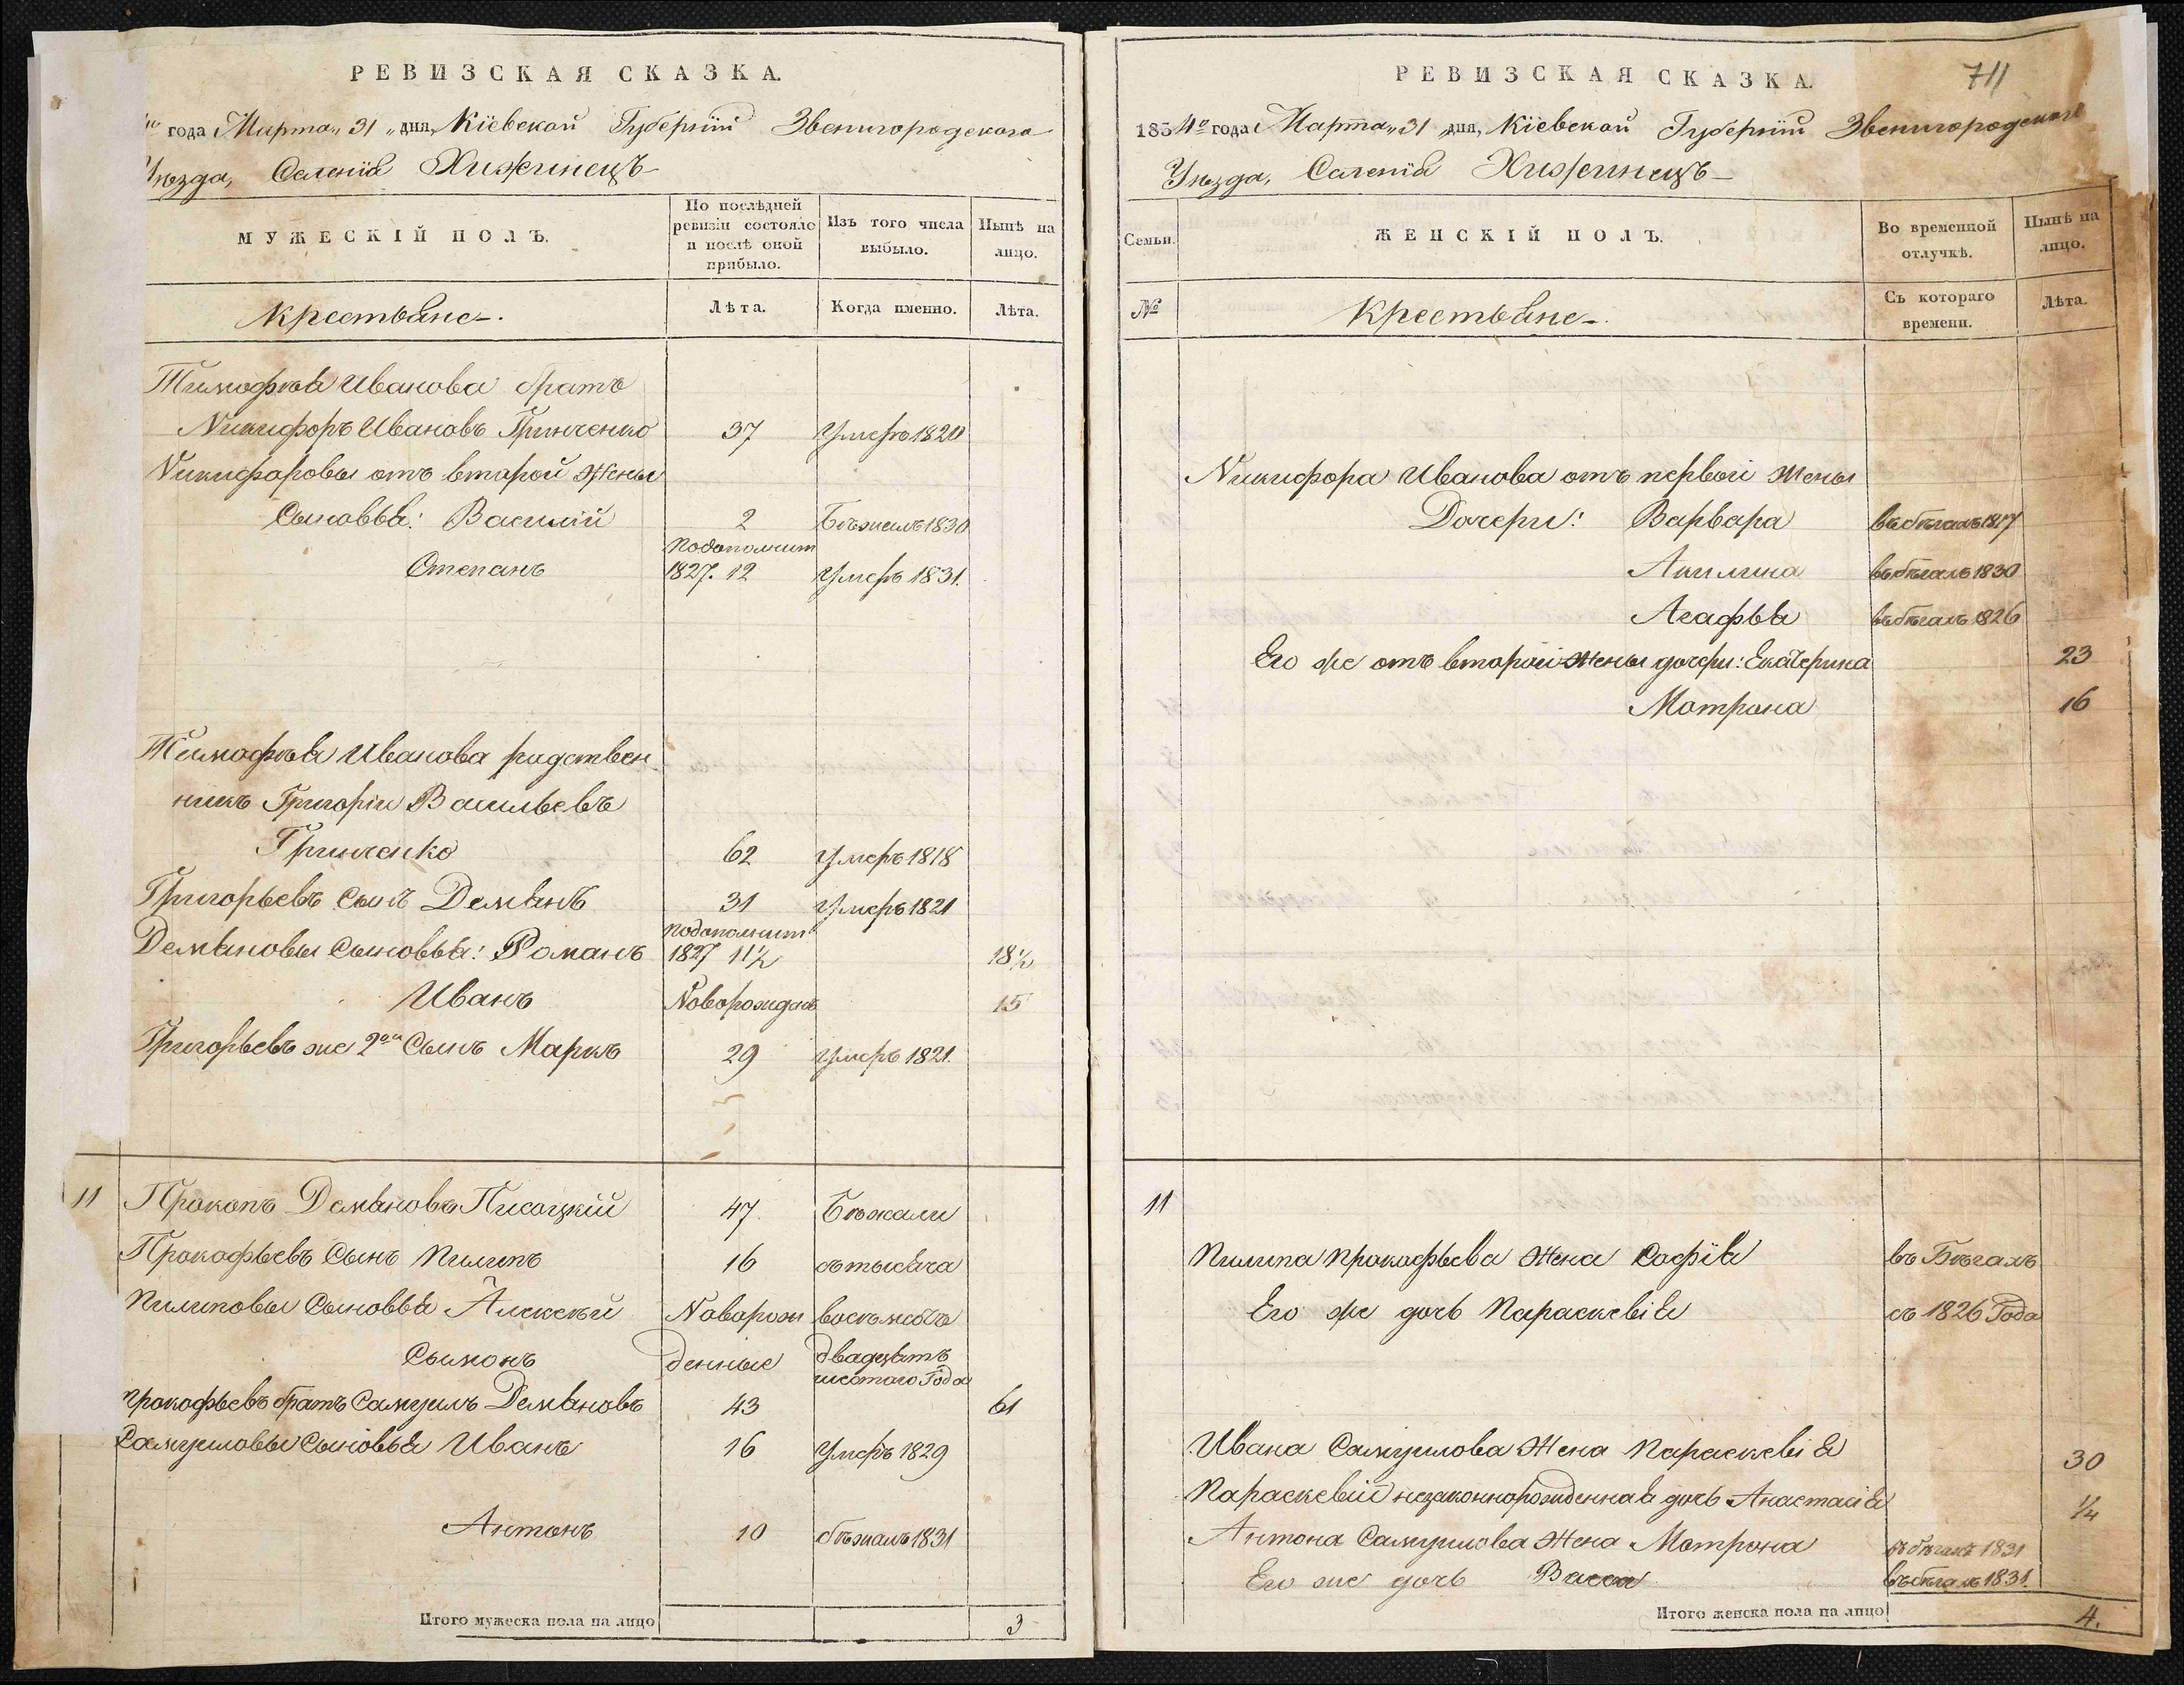 РЕВИЗСКАЯ СКАЗКА.
года Марта „31„ дня, Кіевской Губерніи Звенигородскаго
Уѣзда, Селенія Хижинецъ
МУЖЕСКІЙ ПОЛЪ.
По послѣдней ревизіи состояло и послѣ оной прибыло.
Изъ того числа выбыло.
Нынѣ на лицо.
Крестьяне.
Лѣта.
Когда именно.
Лѣта.
Тимофѣя Иванова братъ
Никифоръ Ивановъ Гринченко 37 Умеръ 1820
Никифоровы отъ второй жены
Сыновья: Василій 2 Бѣжалъ 1830
Степанъ 1827. 12 Умеръ 1831.
Тимофѣя Иванова родствен
никъ Григорій Васильевъ
Гринченко 62 Умеръ 1818
Григорьевъ сынъ Демянъ 31 Умеръ 1821
Демяновы сыновья: Романъ 1827 11½ 18½
Иванъ Новорожденъ 15
Григорьевъ же 2ой сынъ Марко 29 Умеръ 1821.
11 Прокопъ Демяновъ Писоцкій 47. Бѣжали
Прокофьевъ сынъ Пилипъ 16 съ тысяча
Пилиповы сыновья Алексѣй Новорож восемьсотъ
Сымонъ денные двадцать
шестаго Года
Прокофьевъ братъ Самуилъ Демяновъ 43 61
Самуиловы сыновья Иванъ 16 Умеръ 1829
Антонъ 10 бѣжалъ 1831
Итого мужеска пола на лицо 3
РЕВИЗСКАЯ СКАЗКА.
711
1834го года Марта „31 „дня, Кіевской Губерніи Звенигородскаго
Уѣзда, Селенія Хижинецъ
Семьи.
ЖЕНСКІЙ ПОЛЪ.
Во временной отлучкѣ.
Нынѣ на лицо.
№
Крестьяне.
Съ котораго времени.
Лѣта.
Никифора Иванова отъ первой жены
Дочери: Варвара въ бѣгахъ 1817
Акилина въ бѣгахъ 1830
Агафья въ бѣгахъ 1826
Его же отъ второй жены дочери: Екатерина 23
Мотрона 16
11
Пилипа Прокофьева жена Софія въ Бѣгахъ
Его же дочь Параскевія съ 1826 Года
Ивана Самуилова жена Параскевія 30
Параскевіи незаконнорожденная дочь Анастасія ¼
Антона Самуилова жена Мотрона въ бѣгахъ 1831
Его же дочь Васса въ бѣгахъ 1831.
Итого женска пола на лицо 4.